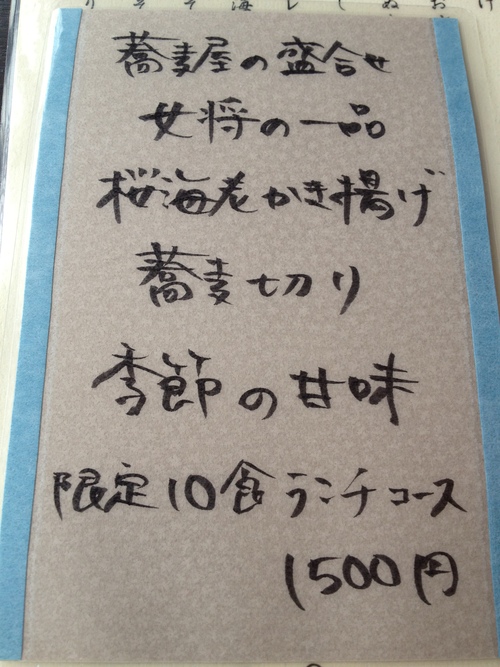 蕎麦屋の盛合せ
女将の一品
桜海老かき揚げ
蕎麦切り
季節の甘味
限定10食ランチコース
1500円